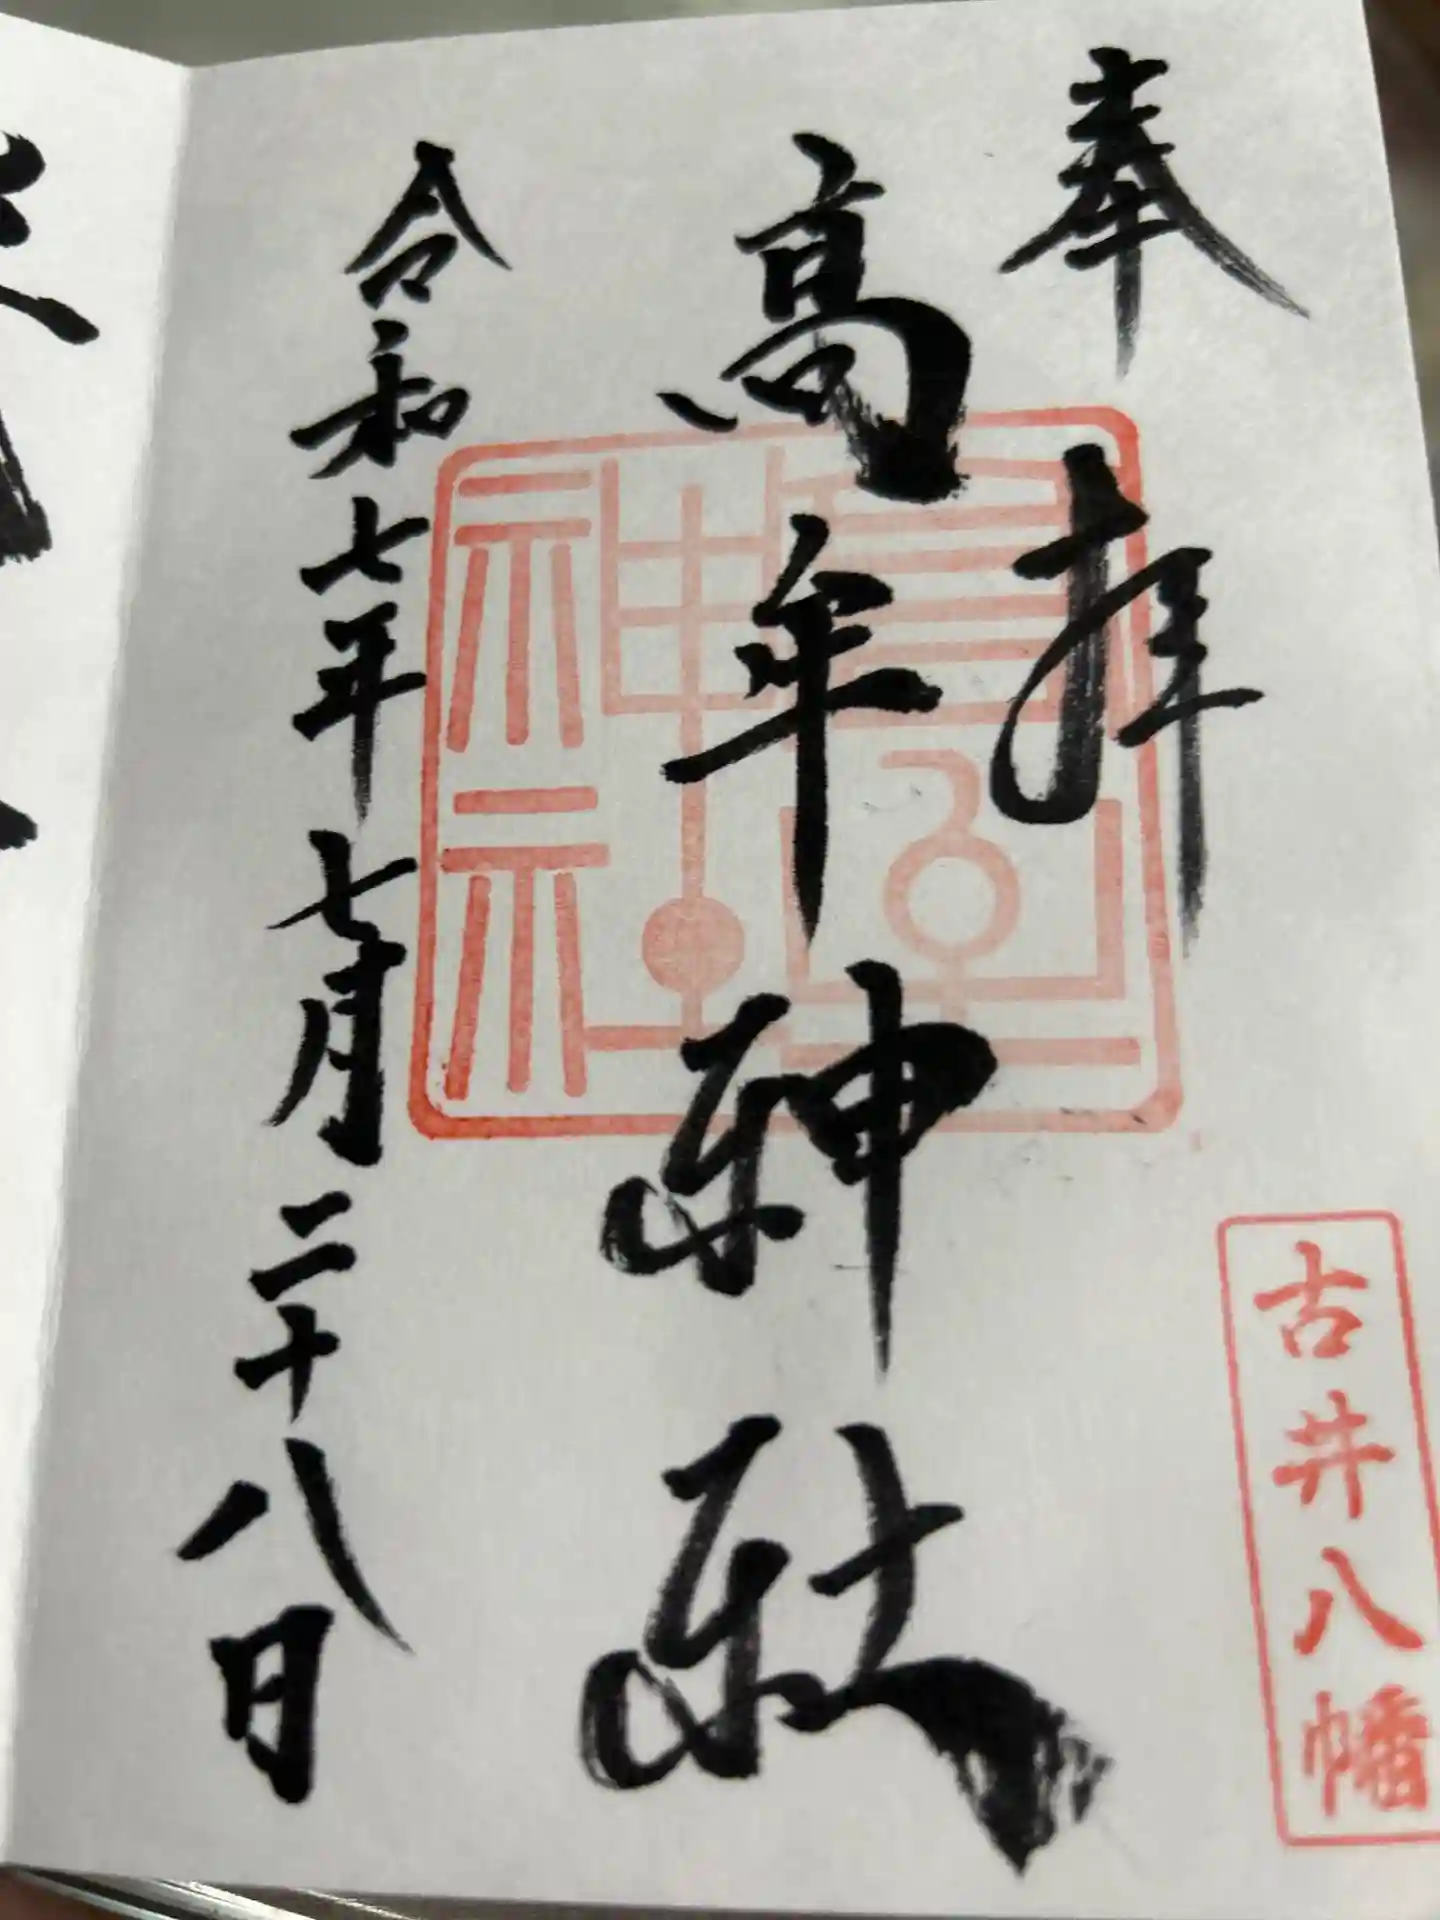 奉拝
古井八幡
高牟神社
高牟
神社
令和七年七月二十八日